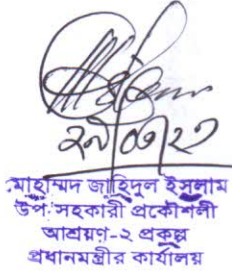 মোহাম্মদ জাহিদুল ইসলাম
উপ-সহকারী প্রকৌশলী
আশ্রয়ণ-২ প্রকল্প
প্রধানমন্ত্রীর কার্যালয়